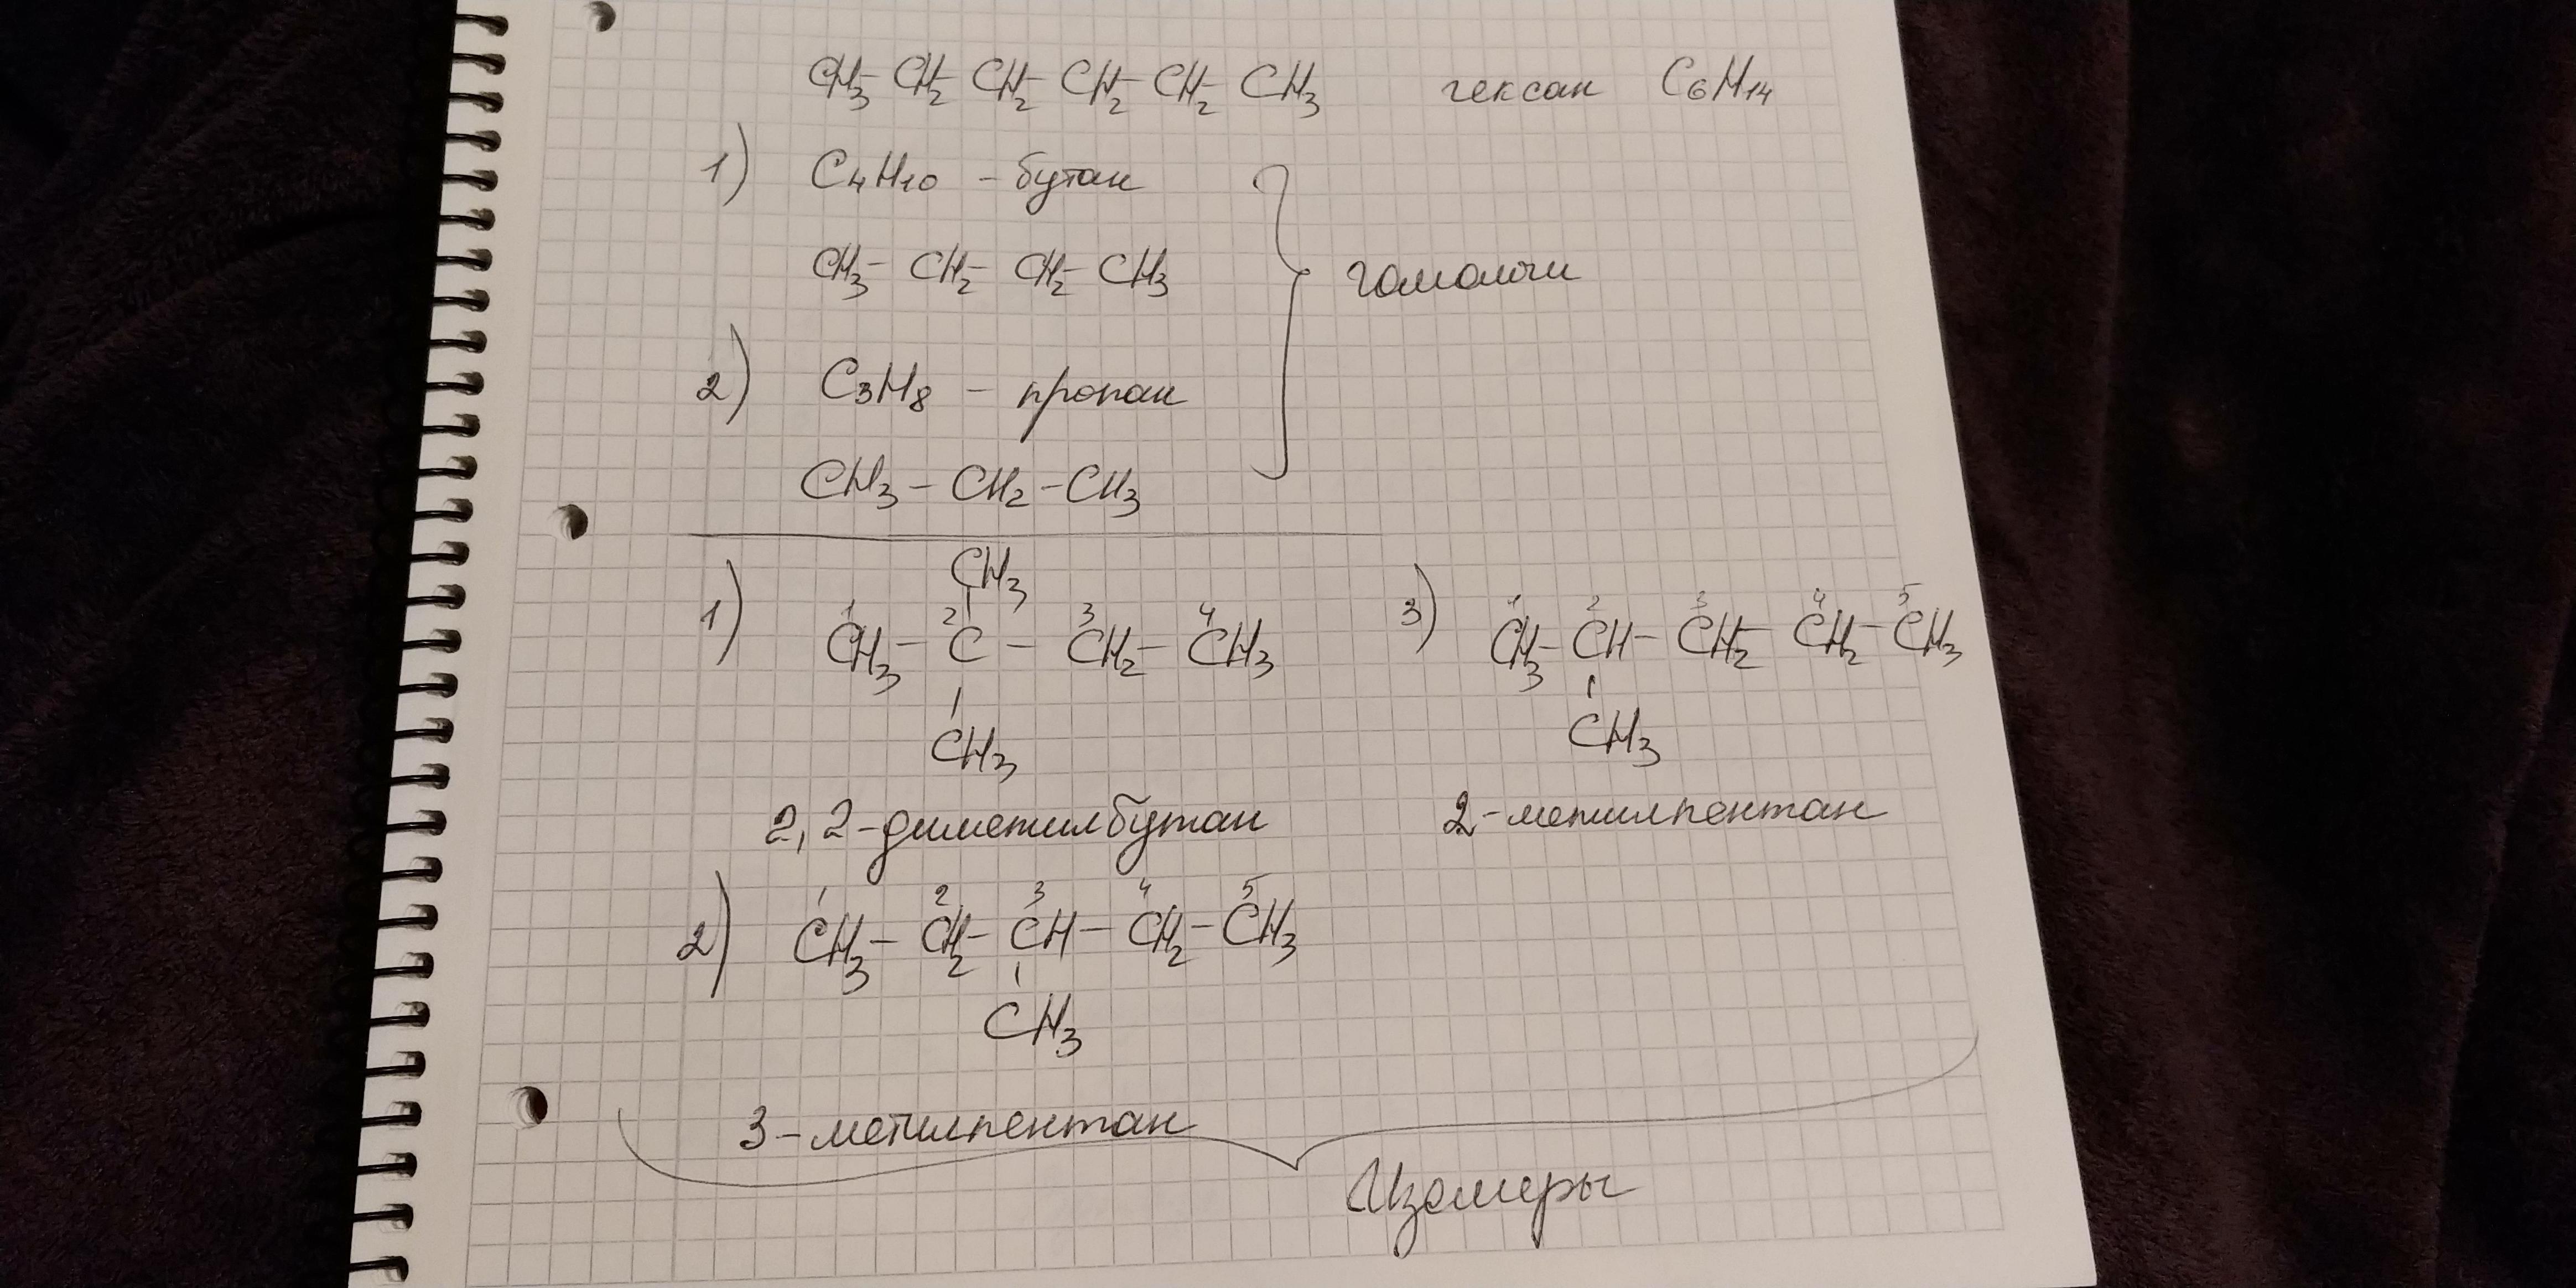 CH₃- CH₂- CH₂- CH₂- CH₂- CH₃ гексан C₆H₁₄
1) C₄H₁₀ - бутан
CH₃- CH₂- CH₂- CH₃
гомологи
2) C₃H₈ - пропан
CH₃ - CH₂ - CH₃
CH₃
1 2 3 4
1) CH₃- C - CH₂- CH₃
CH₃
2,2-диметилбутан
1 2 3 4 5
3) CH₃- CH- CH₂- CH₂- CH₃
CH₃
2-метилпентан
1 2 3 4 5
2) CH₃- CH₂- CH- CH₂- CH₃
CH₃
3-метилпентан
Изомеры